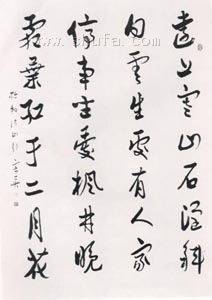 遠上寒山石径斜
白雲生處有人家
停車坐愛楓林晚
霜葉紅于二月花
杜牧詩山行